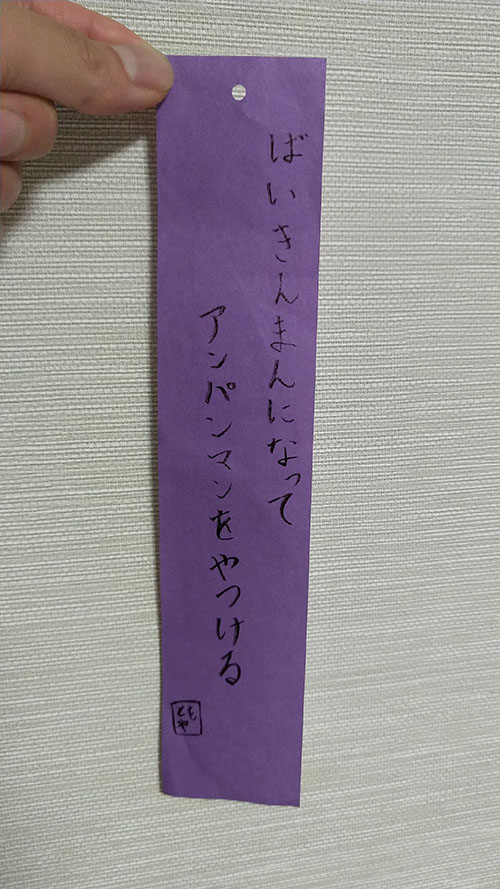 ばいきんまんになって
アンパンマンをやつける
ともや